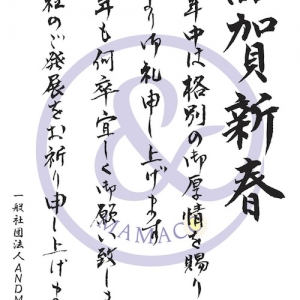 賀新春
年中は格別の御厚情を賜り
より御礼申し上げます
年も何卒宜しく御願い致しま
社のご発展をお祈り申し上げま
一般社団法人ANDM
&
MAMACO